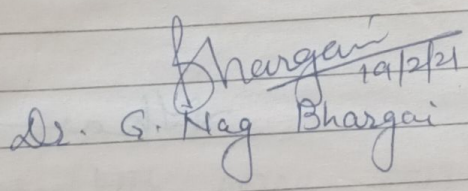 Bhargai
19/2/21
Dr. G. Nag Bhargai